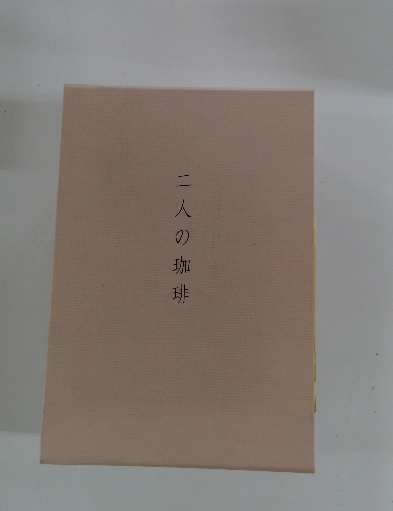 二人の珈琲